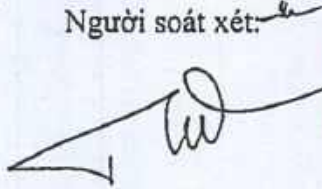 Người soát xét: